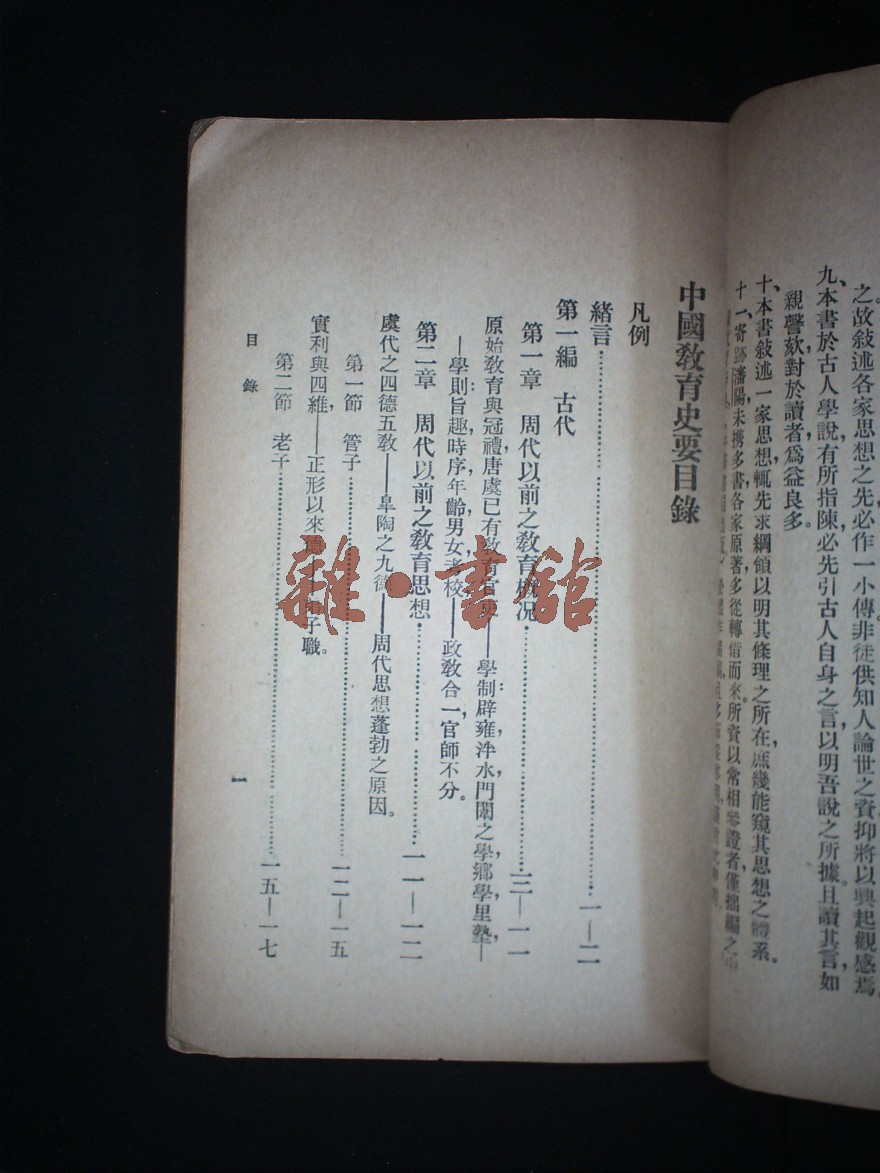 之。故敍述各家思想之先必作一小傳非徒供知人論世之資抑將以興起觀感焉
九、本書於古人學說有所指陳必先引古人自身之言以明吾說之所據且讀其言如
親謦欬對於讀者爲益良多。
十、本書敍述一家思想輒先求綱領以明其條理之所在庶幾能窺其思想之體系。
十一、寄跡瀋陽未携多書各家原著多從轉借而來所資以常相參證者僅拙編之中
中國教育史要目錄
凡例
緒言……一—二
第一編 古代
第一章 周代以前之教育槪况……三—一一
原始教育與冠禮,唐虞已有教育官吏——學制:辟雍,泮水,門闈之學,鄉學里塾—
—學則:旨趣,時序,年齡,男女,考校——政教合一,官師不分。
第二章 周代以前之教育思想……一一—一二
虞代之四德五教——臯陶之九德——周代思想蓬勃之原因。
第一節 管子……一二—一五
實利與四維——正形以來德——弟子職。
第二節 老子……一五—一七
目錄
一
雜·書館